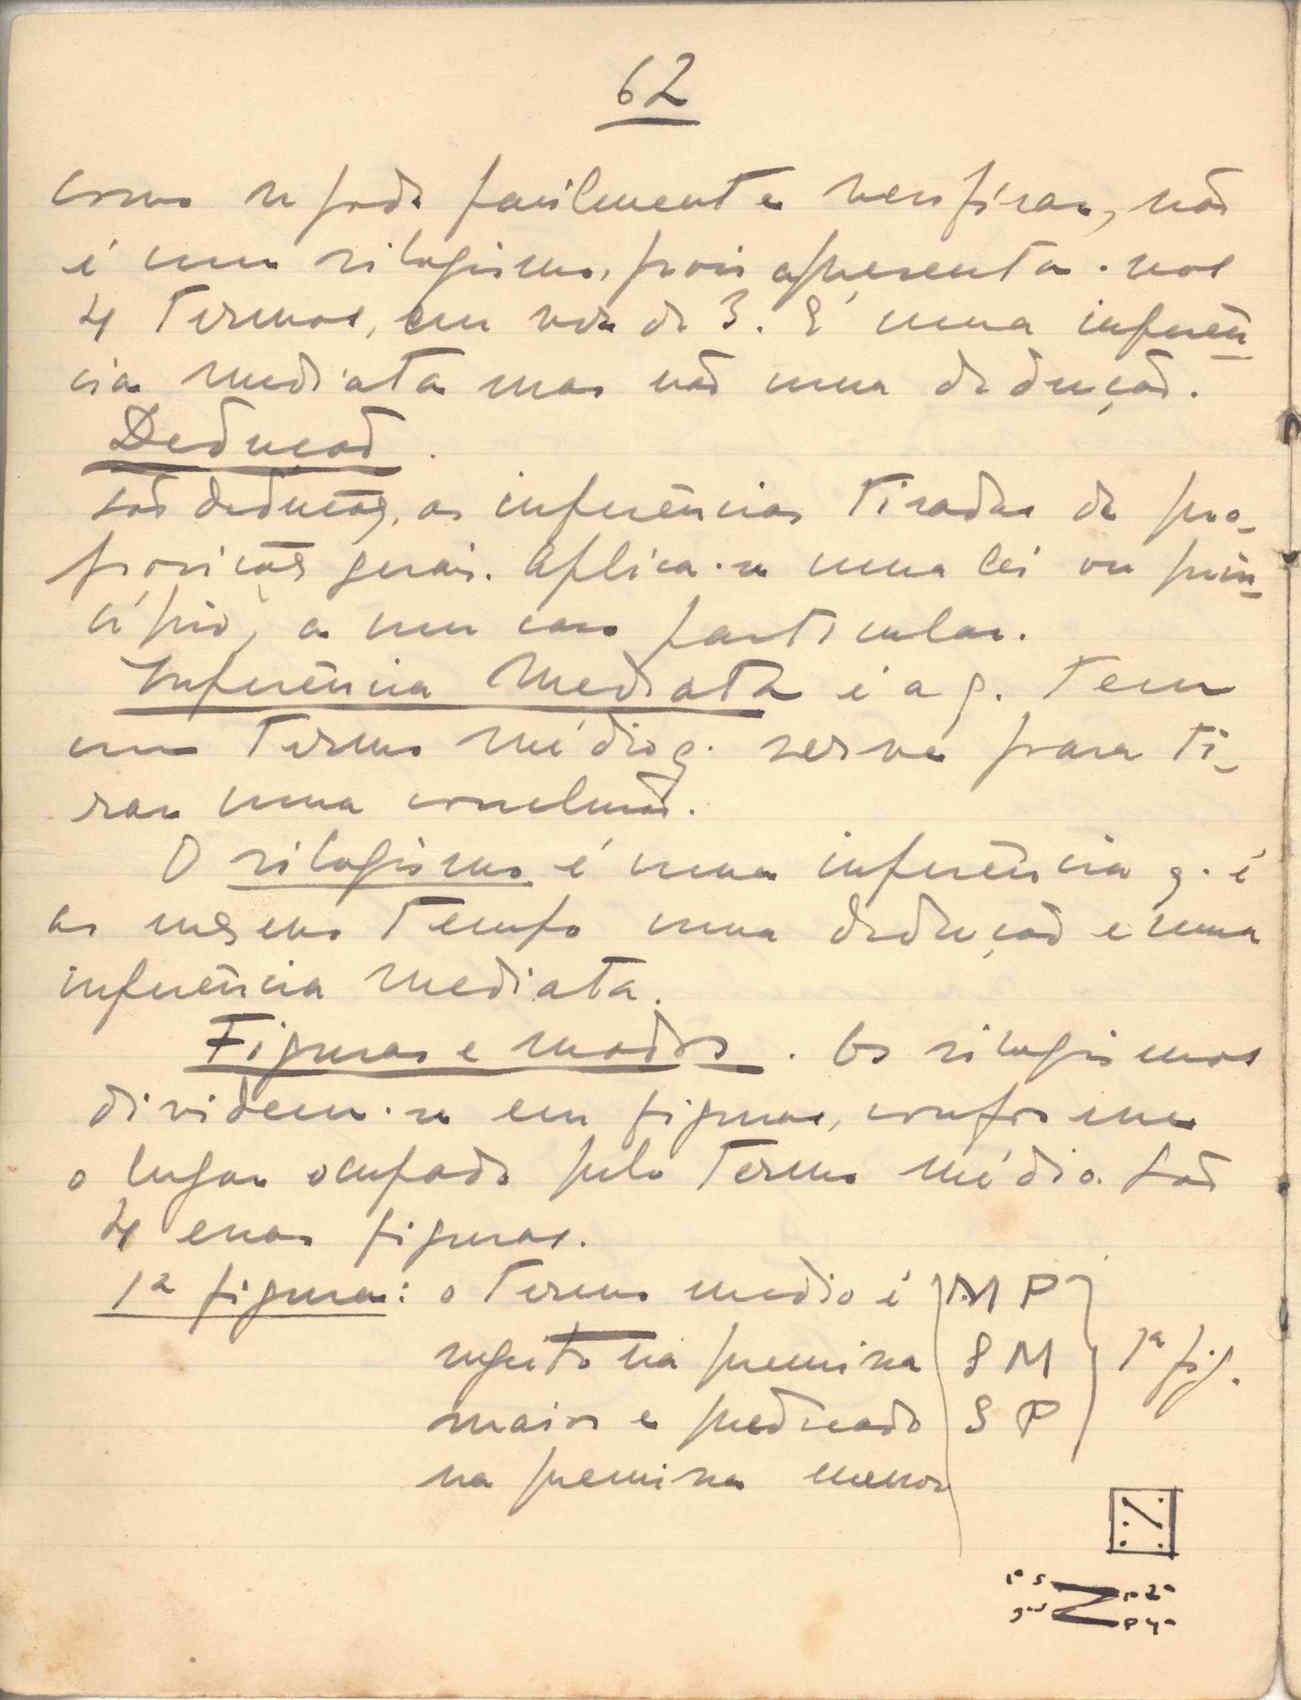 62
como se pode facilmente verificar, não
é um silogismo, pois apresenta-nos
4 termos, em vez de 3. É uma inferên
cia mediata mas não uma dedução.
Dedução.
São deduções, as inferências tiradas de pro-
posições gerais. Aplica-se uma lei ou prin-
cípio, a um caso particular.
Inferência Mediata é a q. tem
um termo médio q. serve para ti-
rar uma conclusão.
O silogismo é uma inferência q. é
ao mesmo tempo uma dedução e uma
inferência mediata.
Figuras e modos. Os silogismos
dividem-se em figuras, conforme
o lugar ocupado pelo termo médio. São
4 essas figuras.
1ª figura: o termo medio é
sujeito na premissa
maior e predicado
na premissa menor
M P
S M
S P
1ª fig.